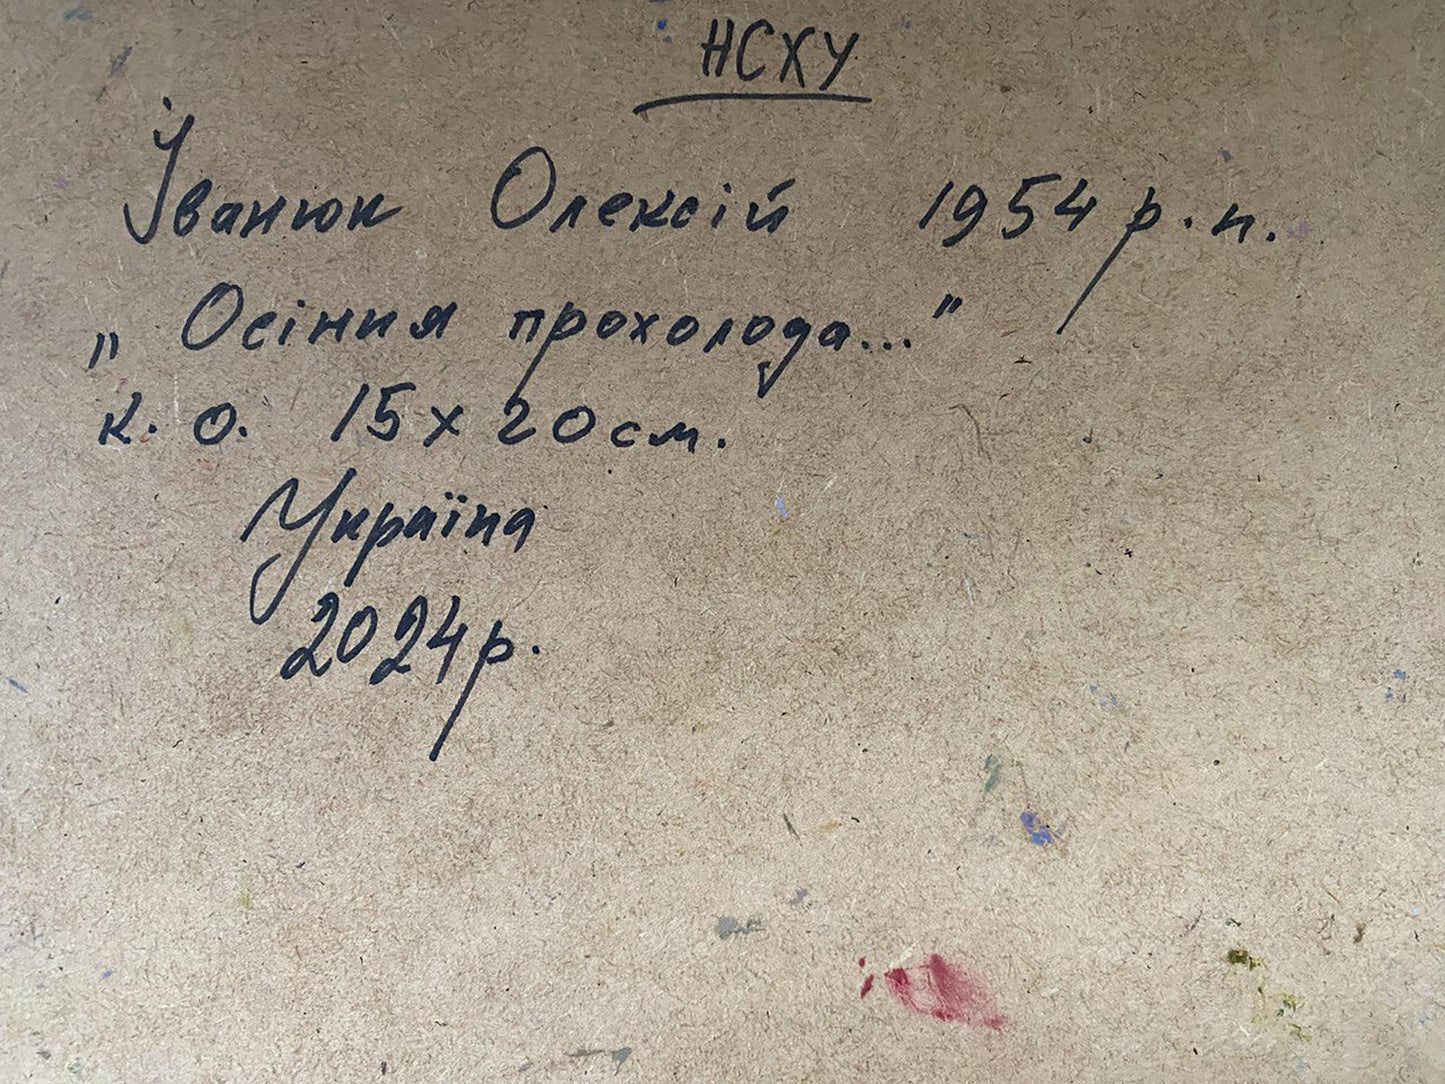 НСХУ
Іванюк Олексій 1954 р.н.
„Осіння прохолода..."
к. о. 15х20см.
Україна
2024р.